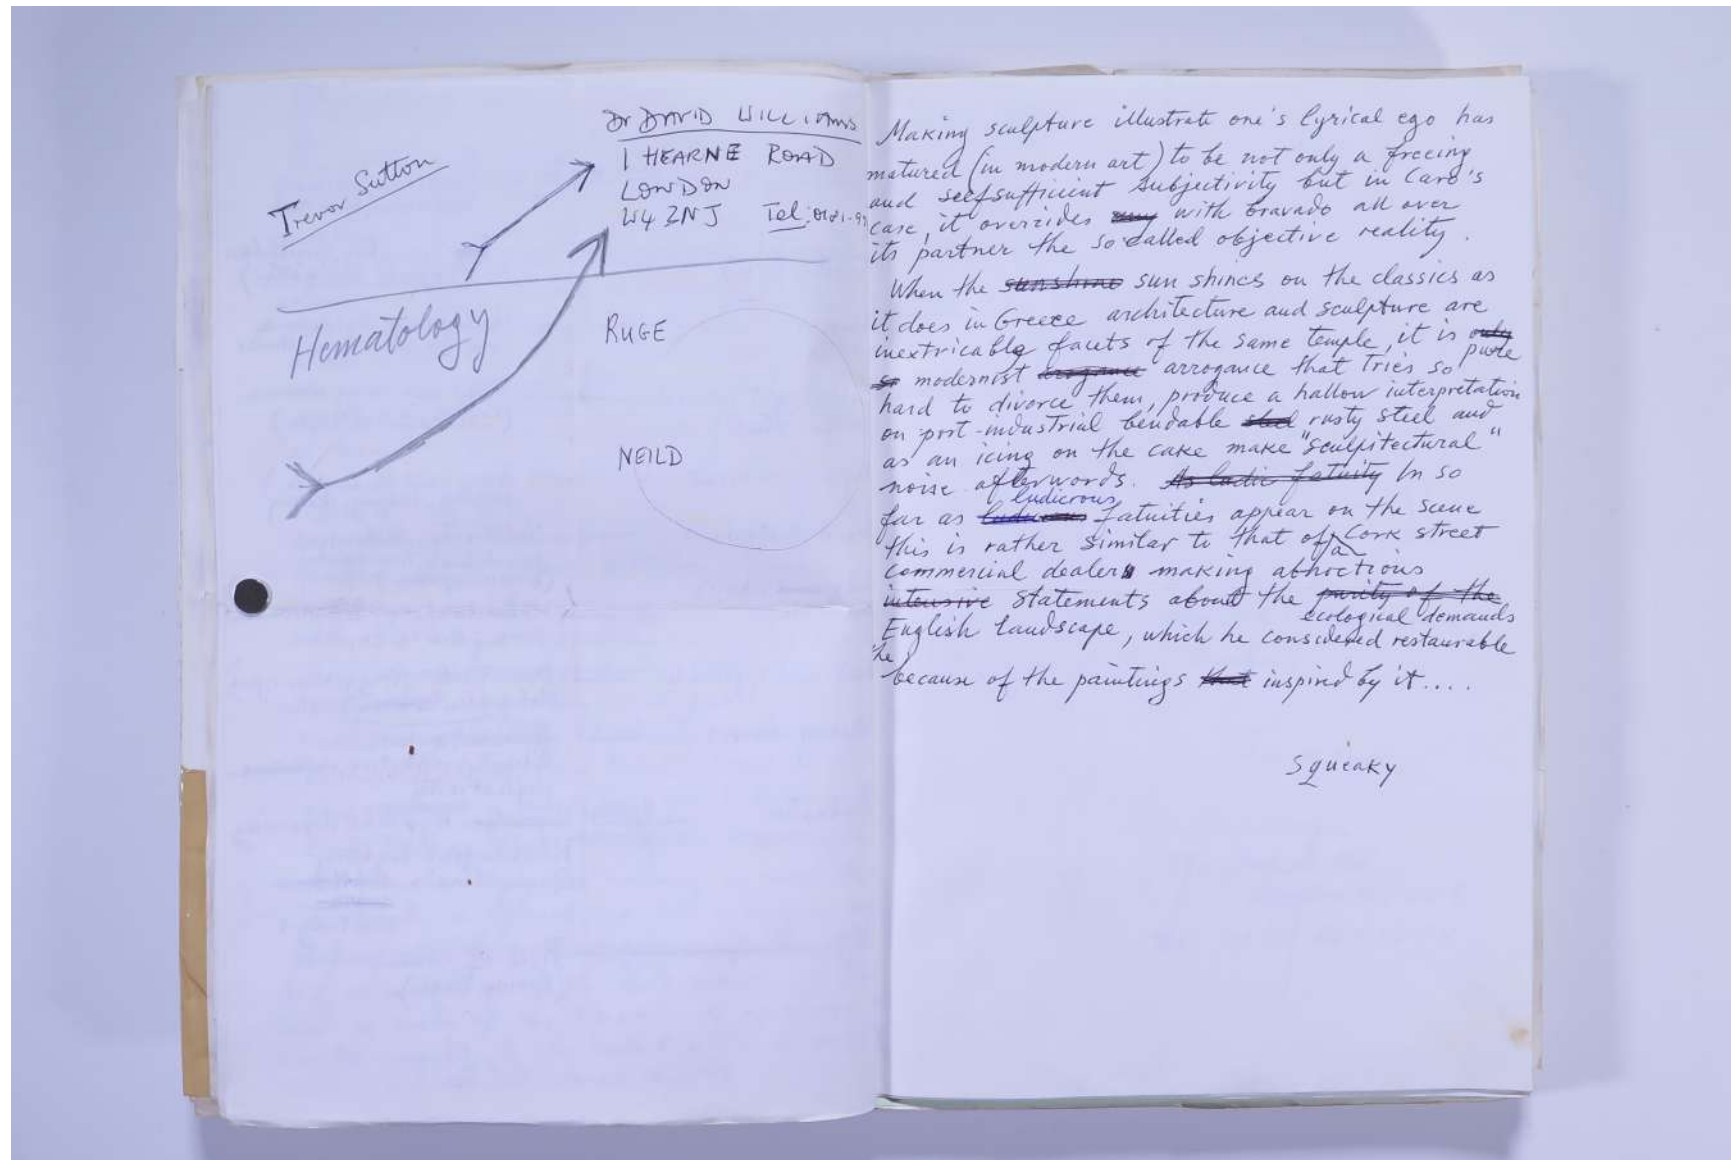 Dr DAVID WILLIAMS
1 HEARNE ROAD
LONDON
W4 3NJ Tel: 0181-99
Trevor Sutton
Hematology
RUGE
NEILD
Making sculpture illustrate one's lyrical ego has
matured (in modern art) to be not only a freeing
and selfsufficient subjectivity but in Caro's
case, it overrides with bravado all over
its partner the so called objective reality.
When the sunshine sun shines on the classics as
it does in Greece architecture and sculpture are
inextricable facets of the same temple, it is only
pure
so modernist arrogance arrogance that tries so
hard to divorce them, produce a hallow interpretation
on port-industrial bendable steel rusty steel and
as an icing on the cake make "sculpitectural"
noise afterwords. As ludic fatuity In so
ludicrous
far as ludicrous fatuities appear on the scene
this is rather similar to that of a Cork street
commercial dealer making
intensive statements about the purity of the
ecological demands
English landscape, which he considered restaurable
he
because of the paintings that inspired by it....
Squeaky